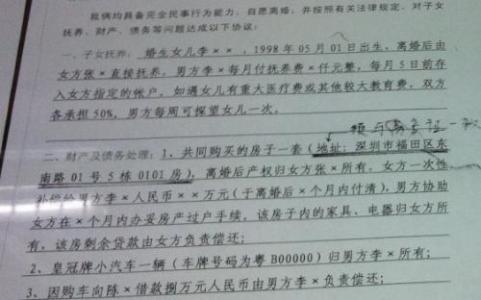 兹俩均具备完全民事行为能力，自愿离婚，并按照有关法律规定，对子女
抚养、财产、债务等问题达成以下协议：
一、子女抚养：婚生女儿李××，1998年05月01日出生，离婚后由
女方张×直接抚养，男方李×每月付抚养费×仟元整，每月5日前存
入女方指定的帐户，如遇女儿有重大医疗费或其他较大教育费，双方
各承担50%，男方每周可探望女儿一次。
二、财产及债务处理：1、共同购买的房子一套（地址：深圳市福田区东
南路01号5栋0101房），离婚后产权归女方张×所有，女方一次性
补偿给男方李×人民币××万元（于离婚后×个月内付清），男方协助
女方在×个月内办妥房产过户手续，该房子内的家具、电器归女方所
有，该房剩余贷款由女方负责偿还；
2、皇冠牌小汽车一辆（车牌号码为粤B00000）归男方李×所有；
3、因购车向陈×借款捌万元人民币由男方李×负责偿还；